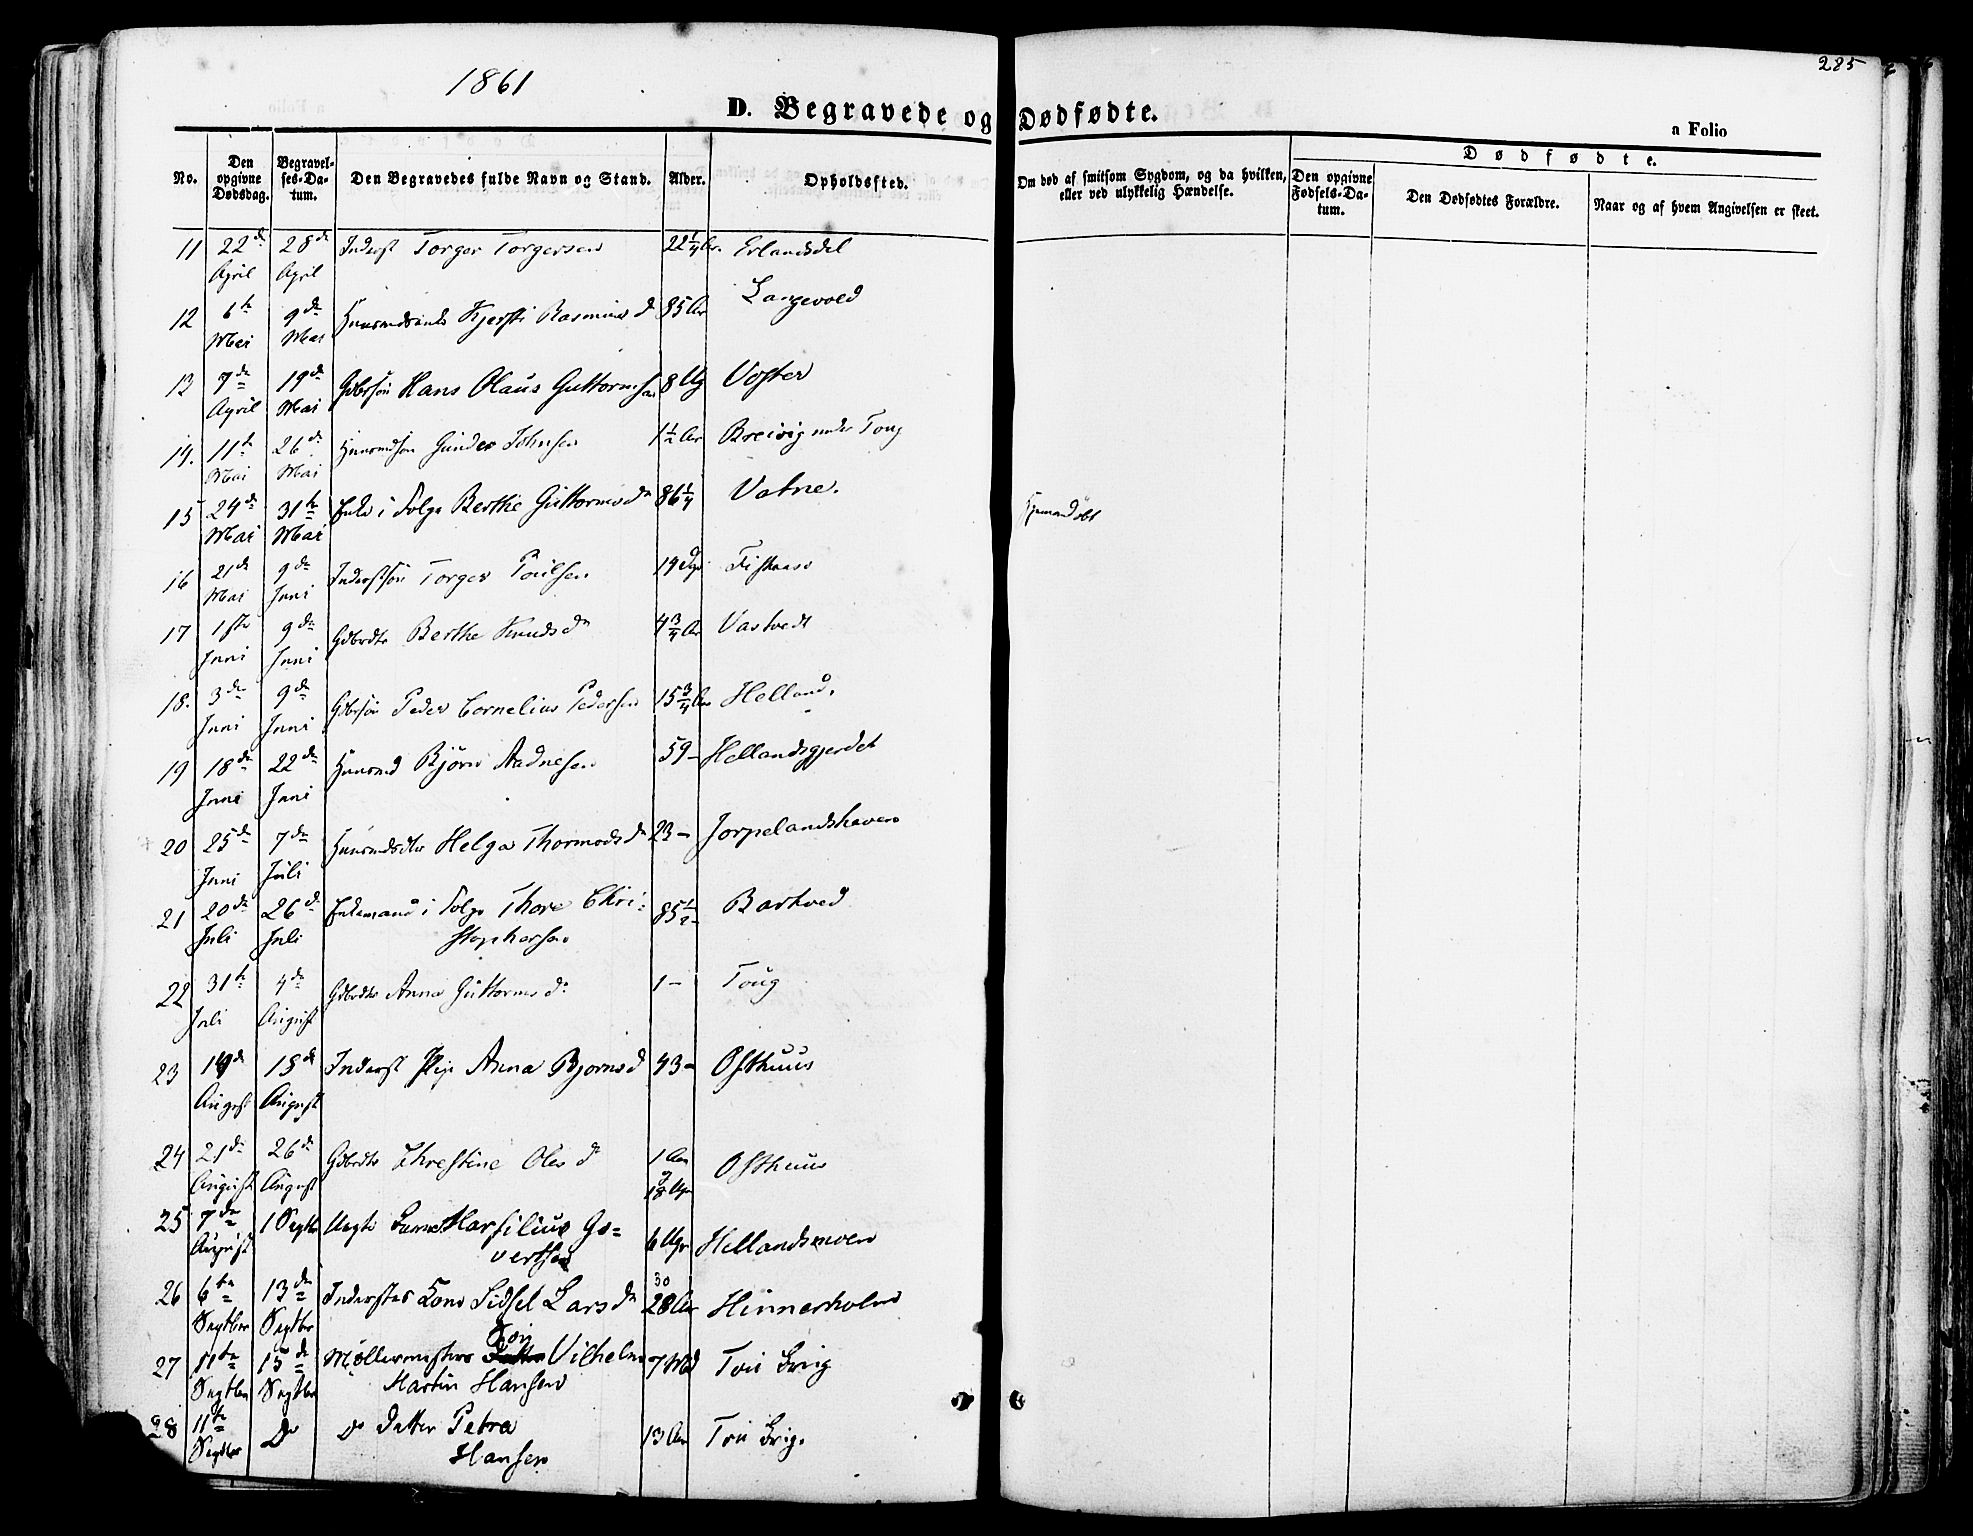 1861
285
D. Begravede og Dødfødte.
a Folio
No.
Den opgivne Dødsdag.
Begravelses-Datum.
Den Begravedes fulde Navn og Stand.
Alder.
Opholdssted.
Om død af smitsom Sygdom, og da hvilken, eller ved ulykkelig Hændelse.
Dødfødte.
Den opgivne Fødsels-Datum.
Den Dødfødtes Forældre.
Naar og af hvem Angivelsen er skeet.
11 22de April 28de April Inderst Torger Torgersen 22 1/4 Aar. Erlandsdal
12 6te Mai 9de Mai Kjersti Rasmusd 85 Aar Langevold
13 7de April 19de Mai Gdbrsøn Hans Olaus Guttormsen 8 Ug Voster
14. 11te Mai 26de Mai Huusmdsøn Gunder Johnsen 1 1/2 Aar Breivig under Toug
15 24de Mai 31te Mai Enke i Følge Berthe Guttormsdr 86 1/4 Vatne.
16 21de Mai 9de Juni Inderstsøn Torger Poulsen 19 Dge Fiskaae
17 1ste Juni 9de Juni Gdbrdtr Berthe Knudsdr 4 3/4 Aar Vastvedt
18. 3de Juni 9de Juni Gdbrsøn Peder Cornelius Pedersen 15 3/4 Aar Helland.
19 18de Juni 22de Juni Huusmd Bjørn Aadnesen 59 - Hellandsgjerdet
20 25de Juni 7de Juli Huusmdsdtr Helga Thormodsdr 23 - Jørpelandshaven
21 20de Juli 26de Juli Enkemand i Følge Thore Chri-
stophersen 85 1/2 - Barkved
22 31te Juli 4de August Gdbrdtr Anna Guttormsdr 1 - Toug
23 14de August 18de August Inderst Pige Anna Bjørnsd 43 - Østhuus
24 21de August 26de August Gdbrdtr Christine Olesdr 1 Aar 18 Uger Østhuus
25 7de August 1 Septbr Uegte Marsilius Go-
vertsen 6 Uger Hellandsmoen
26 6te Septber 13de Septbr Inderstes Kone Sidsel Larsdr 30 28 Aar Hinnerholm
27 11te Septber 15de Septbr Møllermesters Søn Vilhelm
Martin Hansen 7 Md Tou Brug
28 11te Septbr Do Do Datter Petra
Hansen 13 Aar Tou Brug.